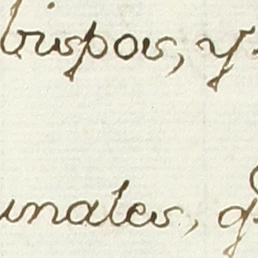 bispos, y
unales, q